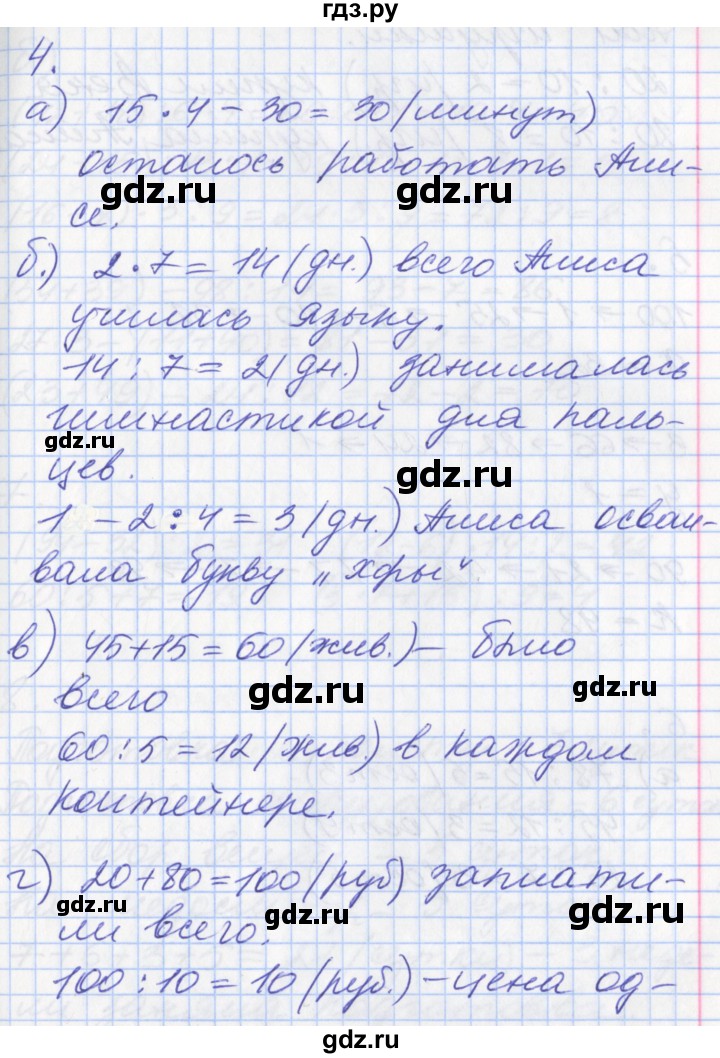 гдз.ру
4.
а) 15·4-30=30/минут)
осталось работать Али-
gdz.ru gdz.ru
се.
б.) 2·7=14/дн.) всего Алиса
училась языку.
14:7=2(дн.) занималась
гимнастикой для паль-
gdz.ru
цев.
gdz.ru
1 -2:4=3/дн.) Алиса осваи-
вала букву „хфы“.
в) 45+15=60/жив.)- было
всего
gdz.ru gdz.ru
60:5=12/жив) в каждом
контейнере.
г) 20+80=100/руб) заплати-
gdz.ru gdz.ru gdz.ru
ли всего.
100:10=10/руб.)-цена од-
gdz.ru